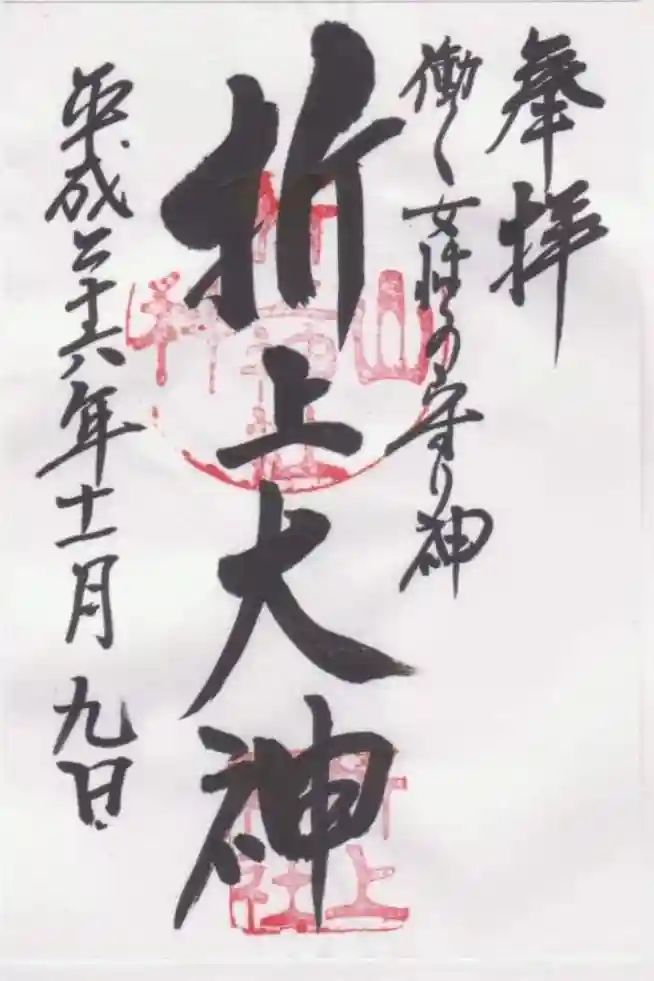 奉拝
働く女性の守り神
折上大神
平成二十六年十一月九日
山科